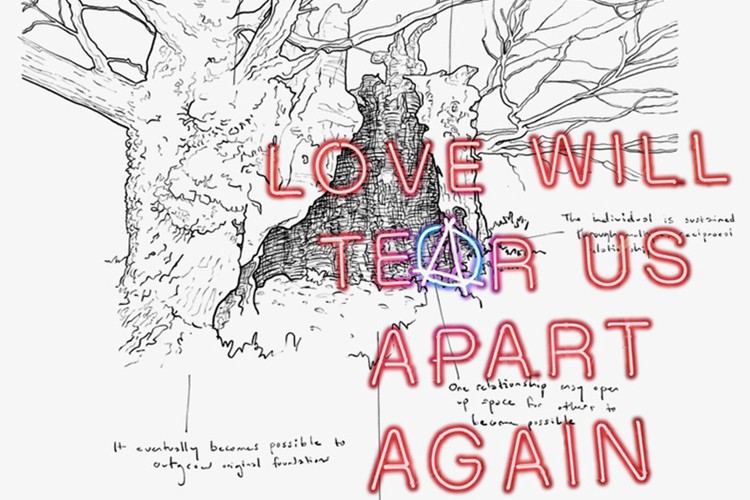 LOVE WILL
TEAR US
APART
AGAIN
The individual is sustained
through reciprocal
relationship
One relationship may open
up space for others to
become possible
It eventually becomes possible to
outgrow original foundations